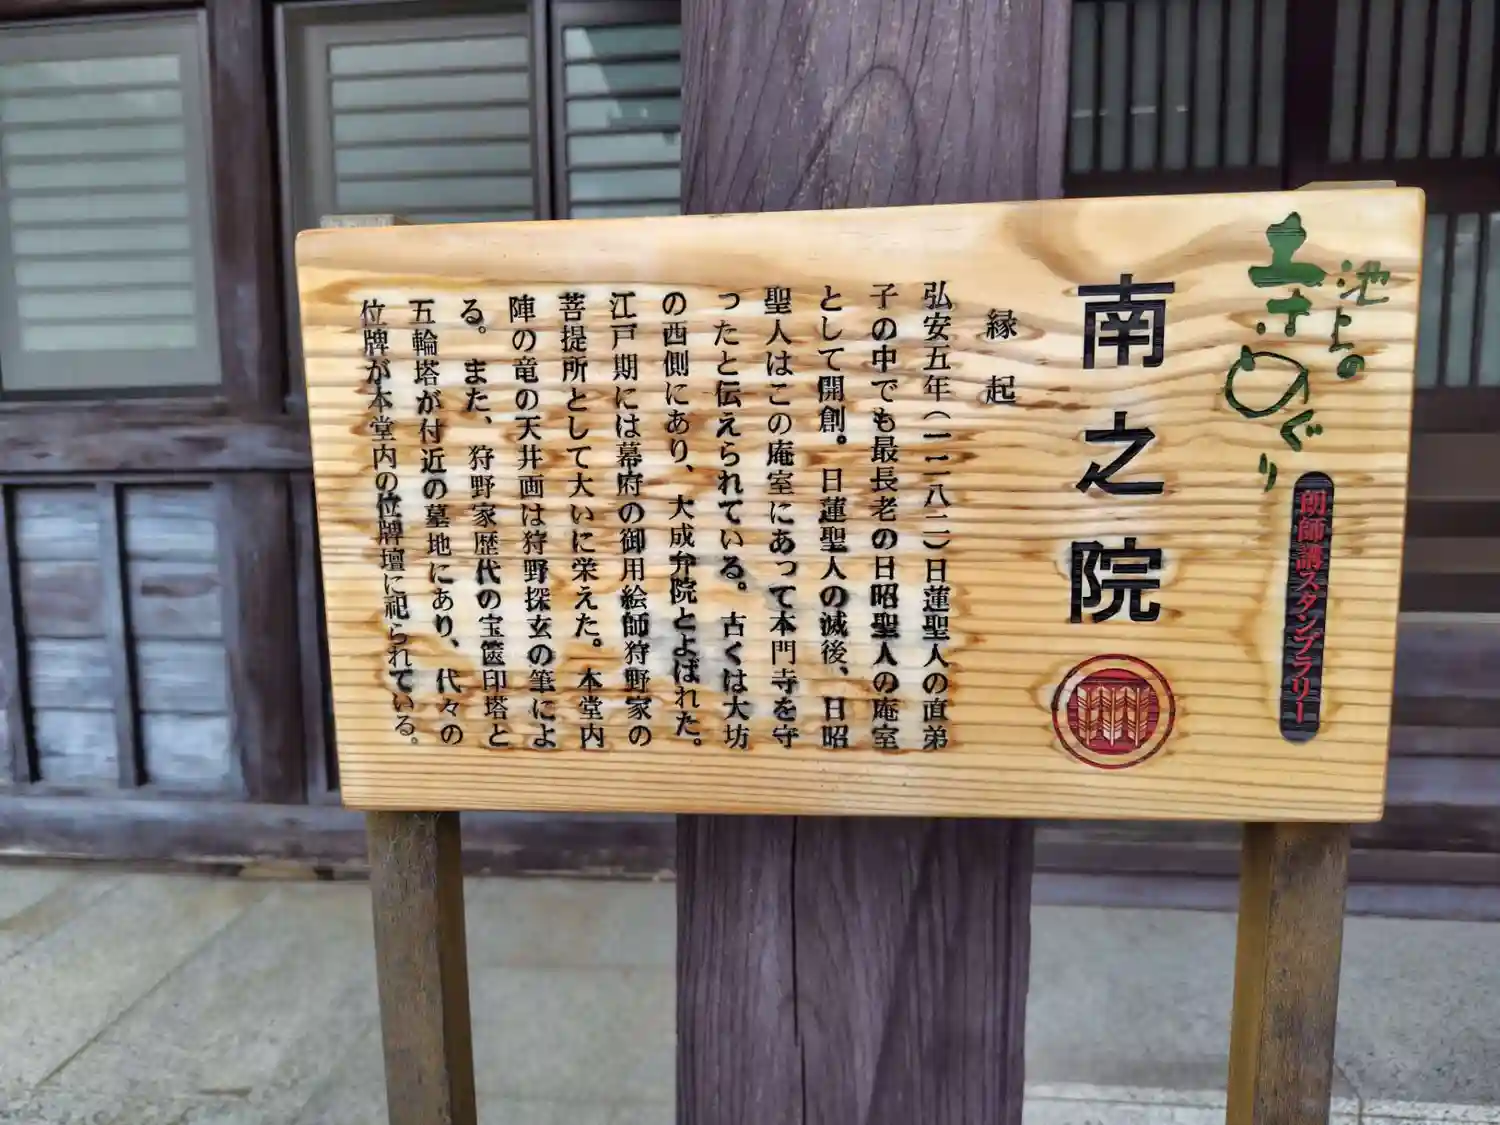 池上の
寺めぐり
朗師講スタンプラリー
南之院
縁起
弘安五年(一二八二)日蓮聖人の直弟
子の中でも最長老の日昭聖人の庵室
として開創。日蓮聖人の滅後、日昭
聖人はこの庵室にあって本門寺を守
ったと伝えられている。古くは大坊
の西側にあり、大成弁院とよばれた。
江戸期には幕府の御用絵師狩野家の
菩提所として大いに栄えた。本堂内
陣の竜の天井画は狩野探玄の筆によ
る。また、狩野家歴代の宝篋印塔と
五輪塔が付近の墓地にあり、代々の
位牌が本堂内の位牌壇に祀られている。